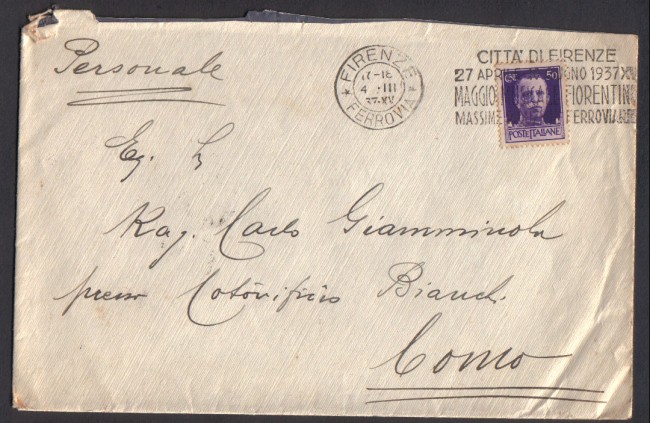 Personale
FIRENZE
17-18
4 III
37.XV
FERROVIA
CITTA' DI FIRENZE
27 APR GNO 1937 XV
MAGGIO FIORENTINO
MASSIME FERROVIARIE
CENT 50
POSTE ITALIANE
Eg.
Rag. Carlo Giamminola
presso Cotonificio Bianchi
Como